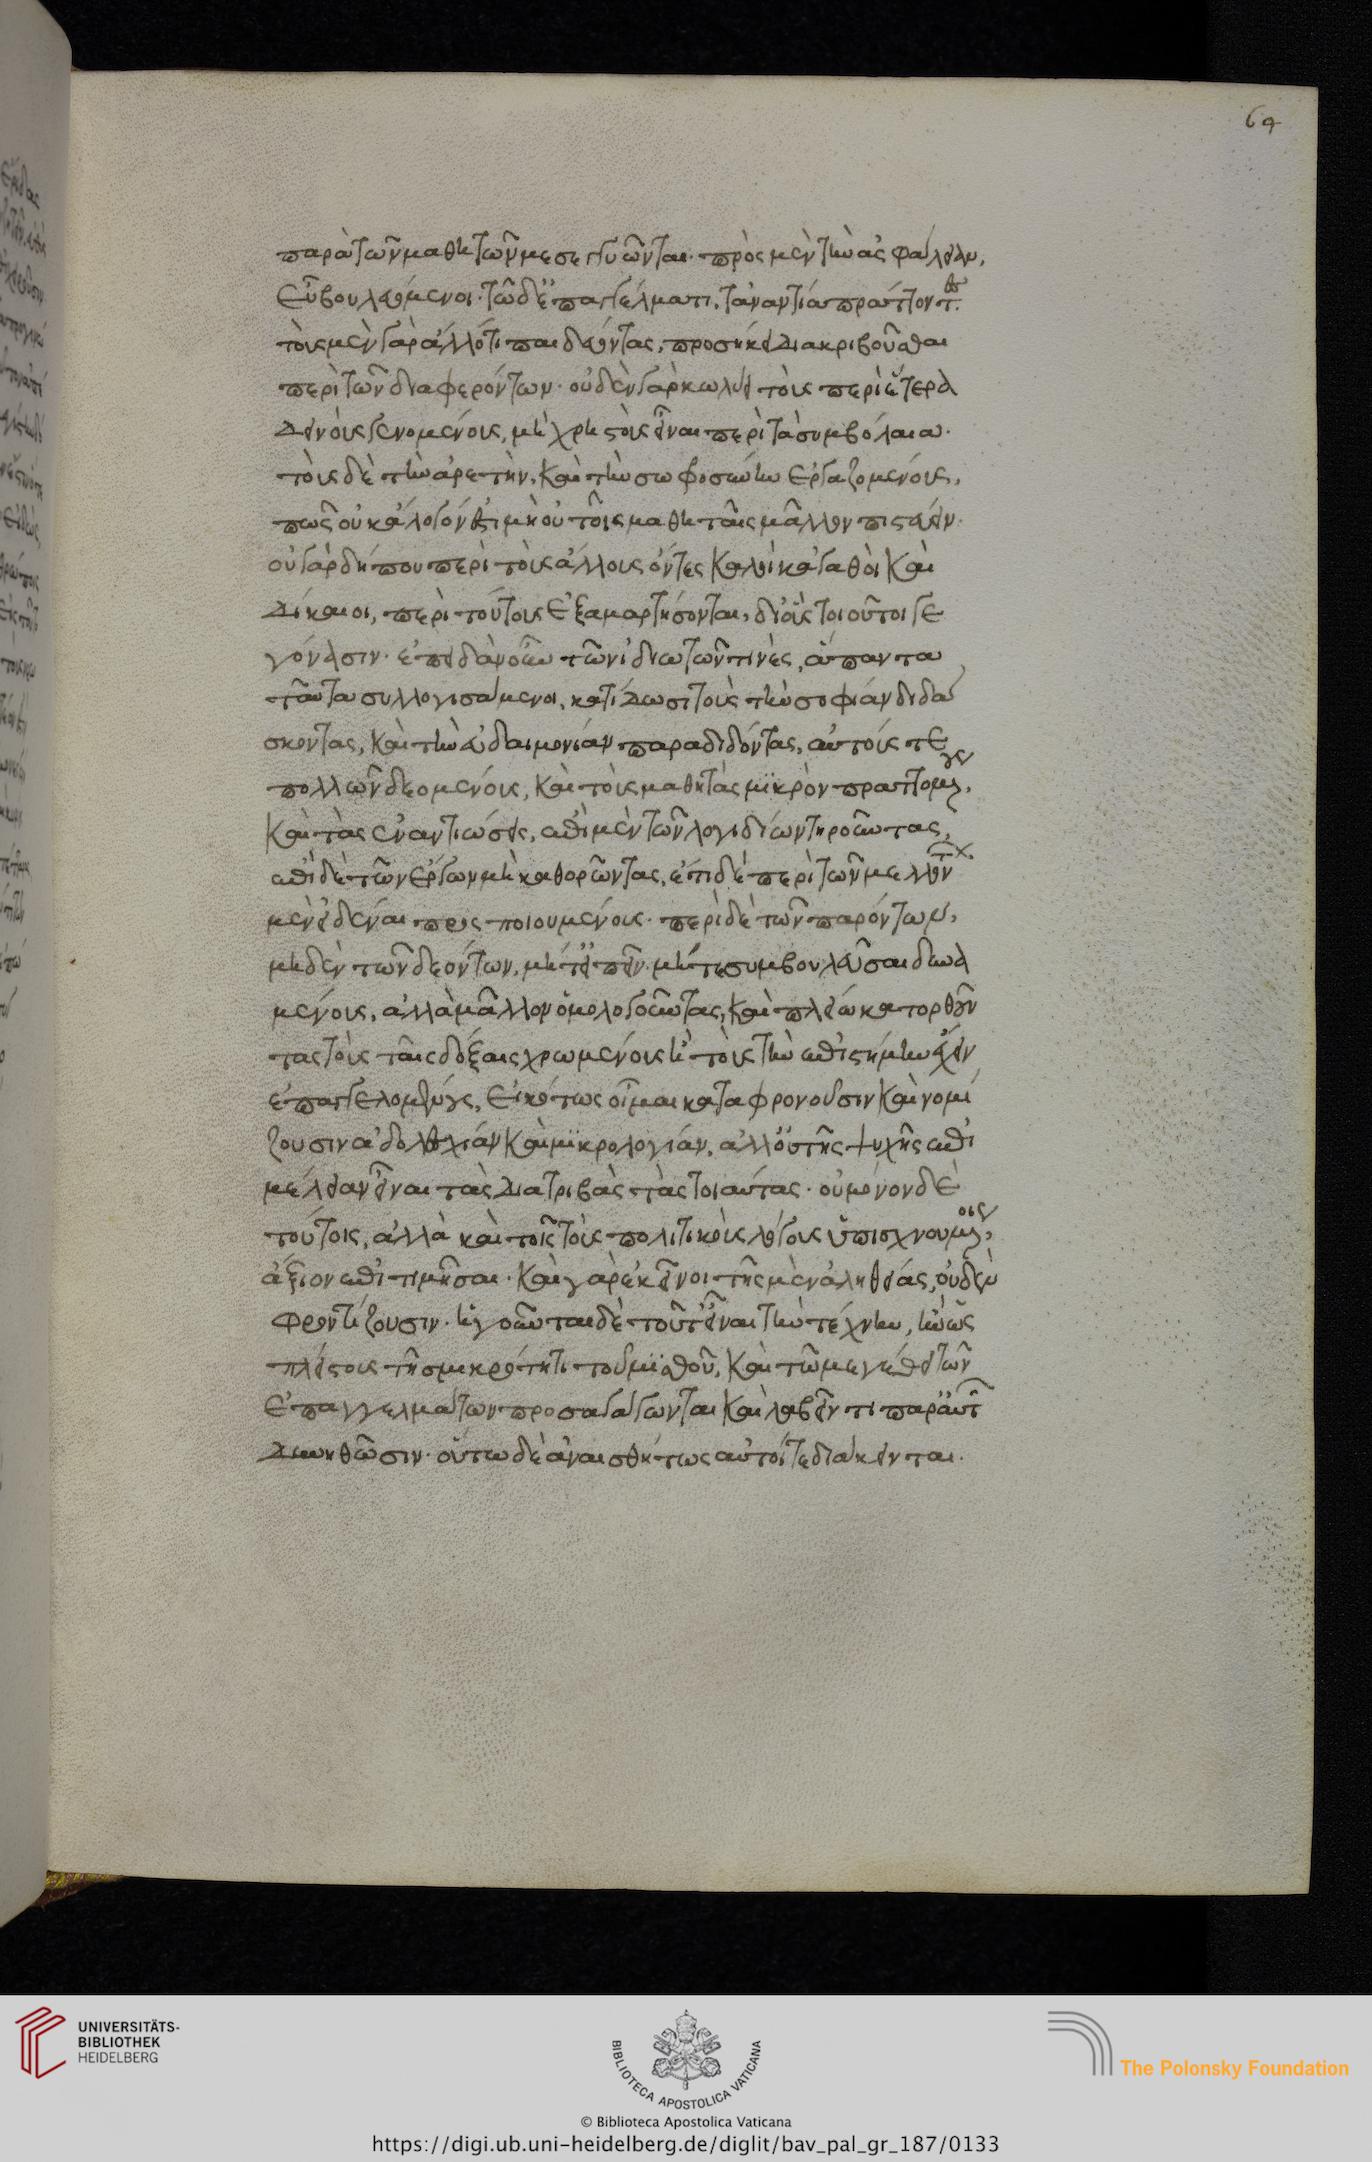 64
παρὰ τῶν μαθητῶν μεσεγγυῶνται· πρὸς μὲν τὴν ἀσφάλειαν,
εὖ βουλευόμενοι· τῶ δὲ ἐπαγγέλματι, τἀναντία πράττοντες.
τοὺς μὲν γὰρ ἄλλό τι παιδεύοντας, προσήκει διακριβοῦσθαι
περὶ τῶν διαφερόντων· οὐδὲν γὰρ κωλύει τοὺς περὶ ἕτερα
δεινοὺς γενομένους, μὴ χρηστοὺς εἶναι περὶ τὰ συμβόλαια·
τοὺς δὲ τὴν ἀρετὴν, καὶ τὴν σωφροσύνην ἐργαζομένους,
πῶς οὐκ ἄλογόν ἐστι μὴ οὐ τοῖς μαθηταῖς μᾶλλον πιστεύειν·
οὐ γὰρ δή που περὶ τοὺς ἄλλους ὄντες καλοὶ κἀγαθοὶ καὶ
δίκαιοι, περὶ τούτους ἐξαμαρτήσονται, δι' οὓς τοιοῦτοι γε
γόνασιν· ἐπειδὰν οὖν τῶν ἰδιωτῶν τινὲς, ἅπαντα
ταῦτα συλλογισάμενοι, κατίδωσι τοὺς τὴν σοφίαν διδά
σκοντας, καὶ τὴν εὐδαιμονίαν παραδιδόντας, αὐτούς τε
πολλῶν δεομένους, καὶ τοὺς μαθητὰς μικρὸν πραττομένους,
καὶ τὰς ἐναντιώσεις, ἐπὶ μὲν τῶν λογιδίων τηροῦντας,
ἐπὶ δὲ τῶν ἔργων μὴ καθορῶντας, ἔτι δὲ περὶ τῶν μελλόντων
μὲν εἰδέναι προσποιουμένους· περὶ δὲ τῶν παρόντων,
μηδὲν τῶν δεόντων, μήτε εἰπεῖν μήτε συμβουλεῦσαι δυνα
μένους, ἀλλὰ μᾶλλον ὁμολογοῦντας, καὶ πλείω κατορθοῦν
τας τοὺς ταῖς δόξαις χρωμένους ἢ τοὺς τὴν ἐπιστήμην ἔχειν
ἐπαγγελομένους, εἰκότως οἶμαι καταφρονοῦσιν καὶ νομί
ζουσιν ἀδολεσχίαν καὶ μικρολογίαν, ἀλλ' οὐ τῆς ψυχῆς ἐπι
μέλειαν εἶναι τὰς διατριβὰς τὰς τοιαύτας· οὐ μόνον δὲ
τούτοις, ἀλλὰ καὶ τοῖς τοὺς πολιτικοὺς λόγους ὑπισχνουμένοις,
ἄξιον ἐπιτιμῆσαι· καὶ γὰρ ἐκεῖνοι τῆς μὲν ἀληθείας, οὐδὲν
φροντίζουσιν· ἡγοῦνται δὲ τοῦτ' εἶναι τὴν τέχνην, ἢν ὡς
πλείστους τῆ σμικρότητι τοῦ μισθοῦ, καὶ τῶ μεγέθει τῶν
ἐπαγγελμάτων προσαγάγωνται καὶ λαβεῖν τι παρ' αὐτῶν
δυνηθῶσιν· οὕτω δὲ ἀναισθήτως αὐτοί τε διάκεινται.
UNIVERSITÄTS-
BIBLIOTHEK
HEIDELBERG
BIBLIOTECA APOSTOLICA VATICANA
The Polonsky Foundation
© Biblioteca Apostolica Vaticana
https://digi.ub.uni-heidelberg.de/diglit/bav_pal_gr_187/0133